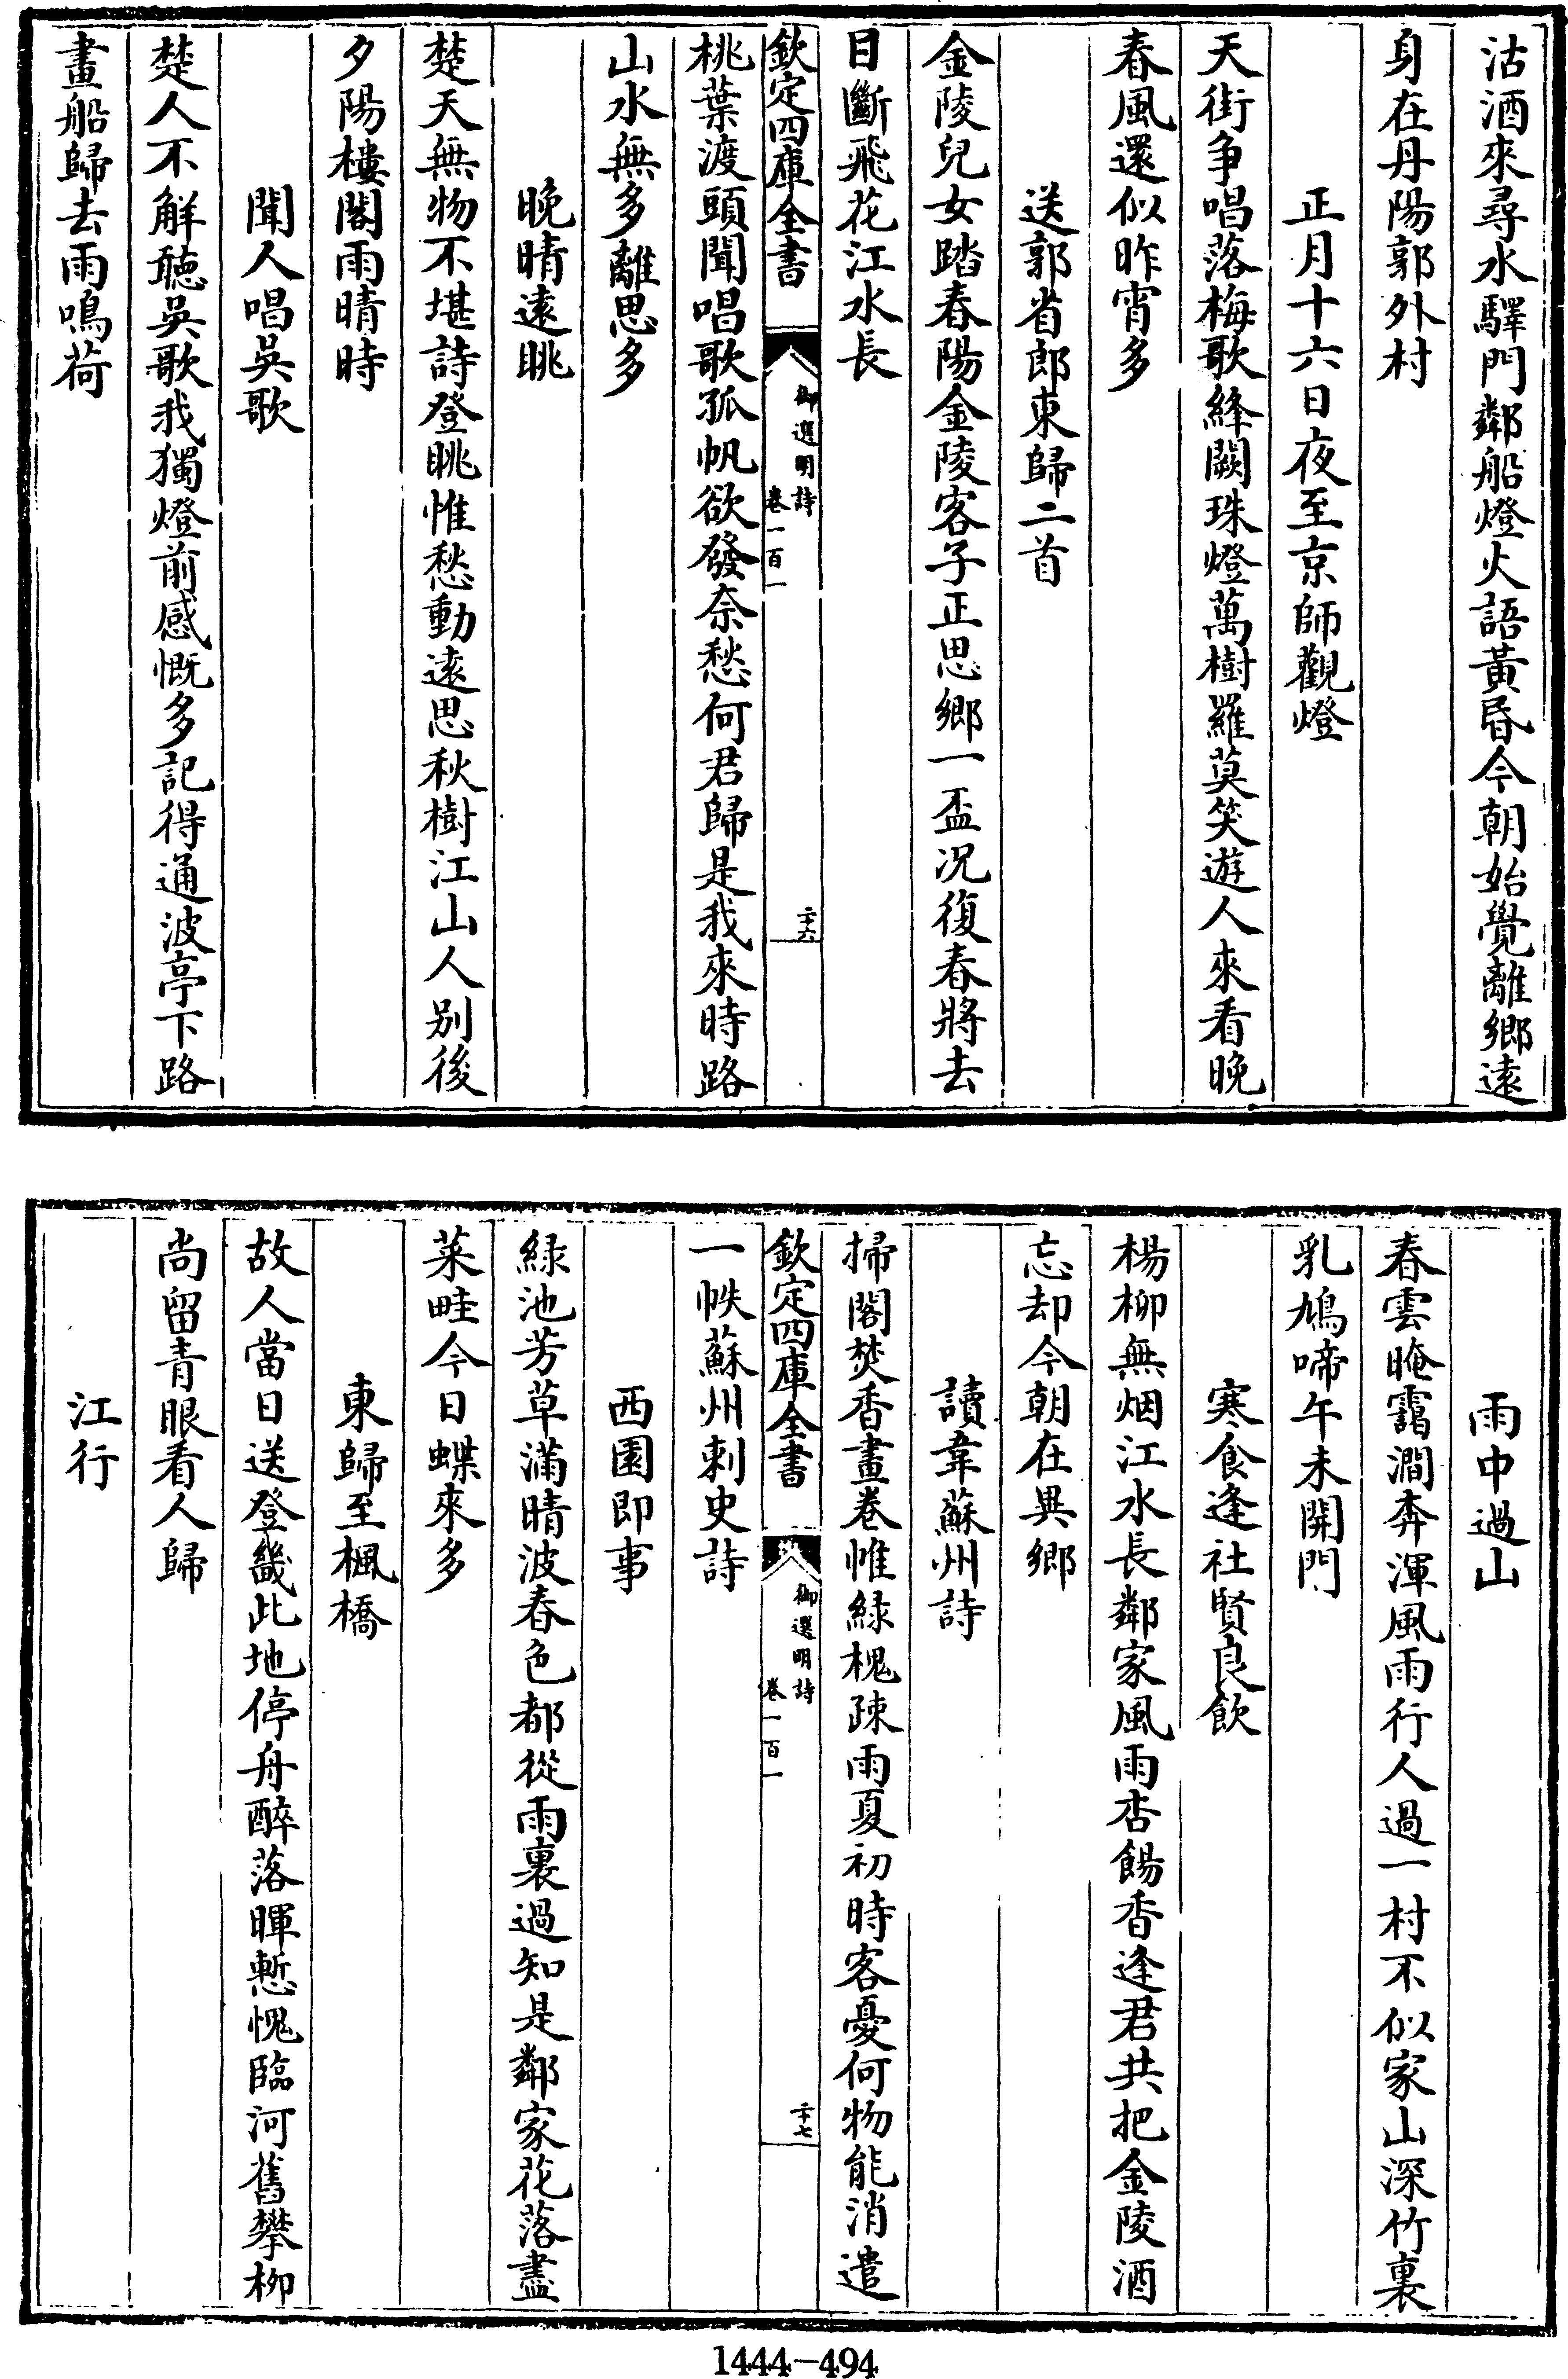 沽酒來尋水驛門鄰船燈火語黃昏今朝始覺離鄉遠
身在丹陽郭外村
正月十六日夜至京師觀燈
天街爭唱落梅歌絳闕珠燈萬樹羅莫笑遊人來看晚
春風還似昨宵多
送郭省郎東歸二首
金陵兒女踏春陽金陵客子正思鄉一盃况復春將去
目斷飛花江水長
欽定四庫全書
御選明詩
卷一百一
二十六
桃葉渡頭聞唱歌孤帆欲發奈愁何君歸是我來時路
山水無多離思多
晚晴遠眺
楚天無物不堪詩登眺惟愁動遠思秋樹江山人别後
夕陽樓閣雨晴時
聞人唱吳歌
楚人不解聽吳歌我獨燈前感慨多記得通波亭下路
畫船歸去雨鳴荷
雨中過山
春雲晻靄澗奔渾風雨行人過一村不似家山深竹裏
乳鳩啼午未開門
寒食逢社賢良飲
楊柳無烟江水長鄰家風雨杏餳香逢君共把金陵酒
忘却今朝在異鄉
讀韋蘇州詩
掃閣焚香畫卷惟緑槐疎雨夏初時客憂何物能消遣
欽定四庫全書
御選明詩
卷一百一
二十七
一帙蘇州刺史詩
西園即事
緑池芳草滿晴波春色都從雨裏過知是鄰家花落盡
菜畦今日蝶來多
東歸至楓橋
故人當日送登畿此地停舟醉落暉慙愧臨河舊攀柳
尚留青眼看人歸
江行
1444-494